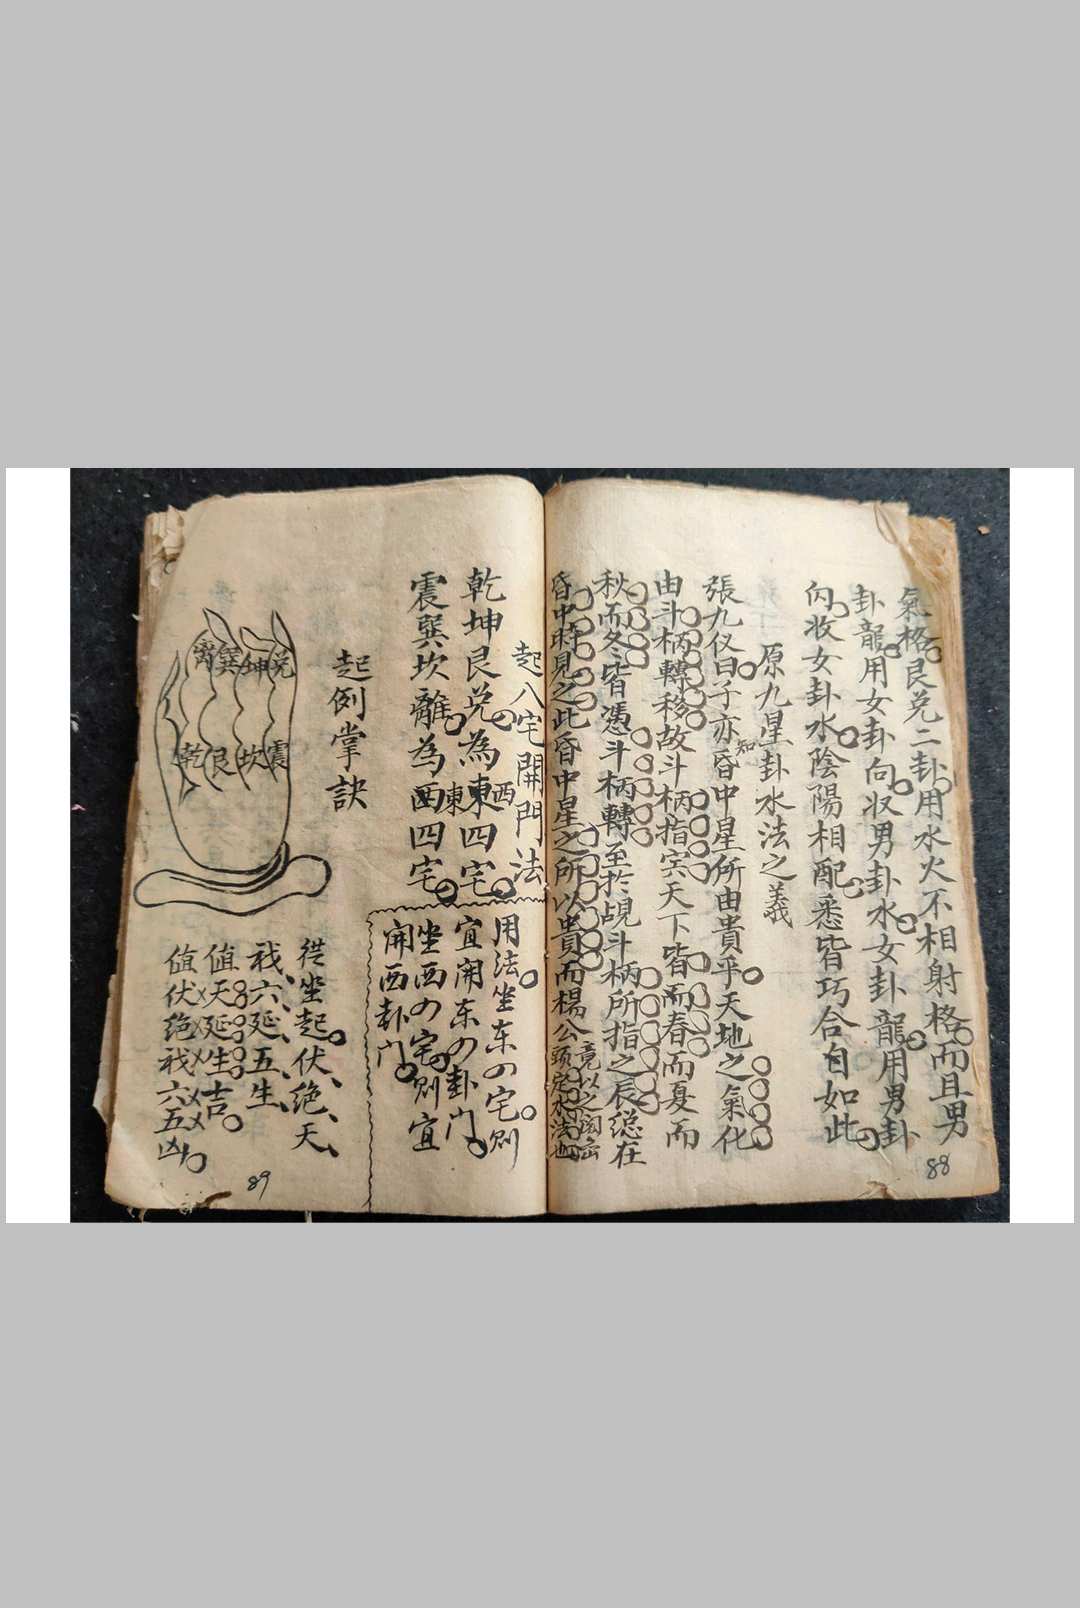 氣格艮兌二卦用水火不相射格而且男
卦龍用女卦向収男卦水女卦龍用男卦
向收女卦水陰陽相配悉皆巧合自如此
原九星卦水法之義
張九仪曰子亦知昏中星所由貴乎天地之氣化
由斗柄轉移故斗柄指寅天下皆而春而夏而
秋而冬皆憑斗柄轉至於覘斗柄所指之辰総在
昏中時見之此昏中星之所以貴而楊公
竟以之
頭定水法也
88
起八宅開門法
乾坤艮兌為東西四宅
震巽坎離為西東四宅
用法坐东の宅则
宜開东の卦门
坐西の宅则宜
開西卦门
起例掌訣
兌
坤
巽
离
震
坎
艮
乾
從坐起伏绝天
祸六延五生
值天延生吉
值伏绝祸六五凶
89